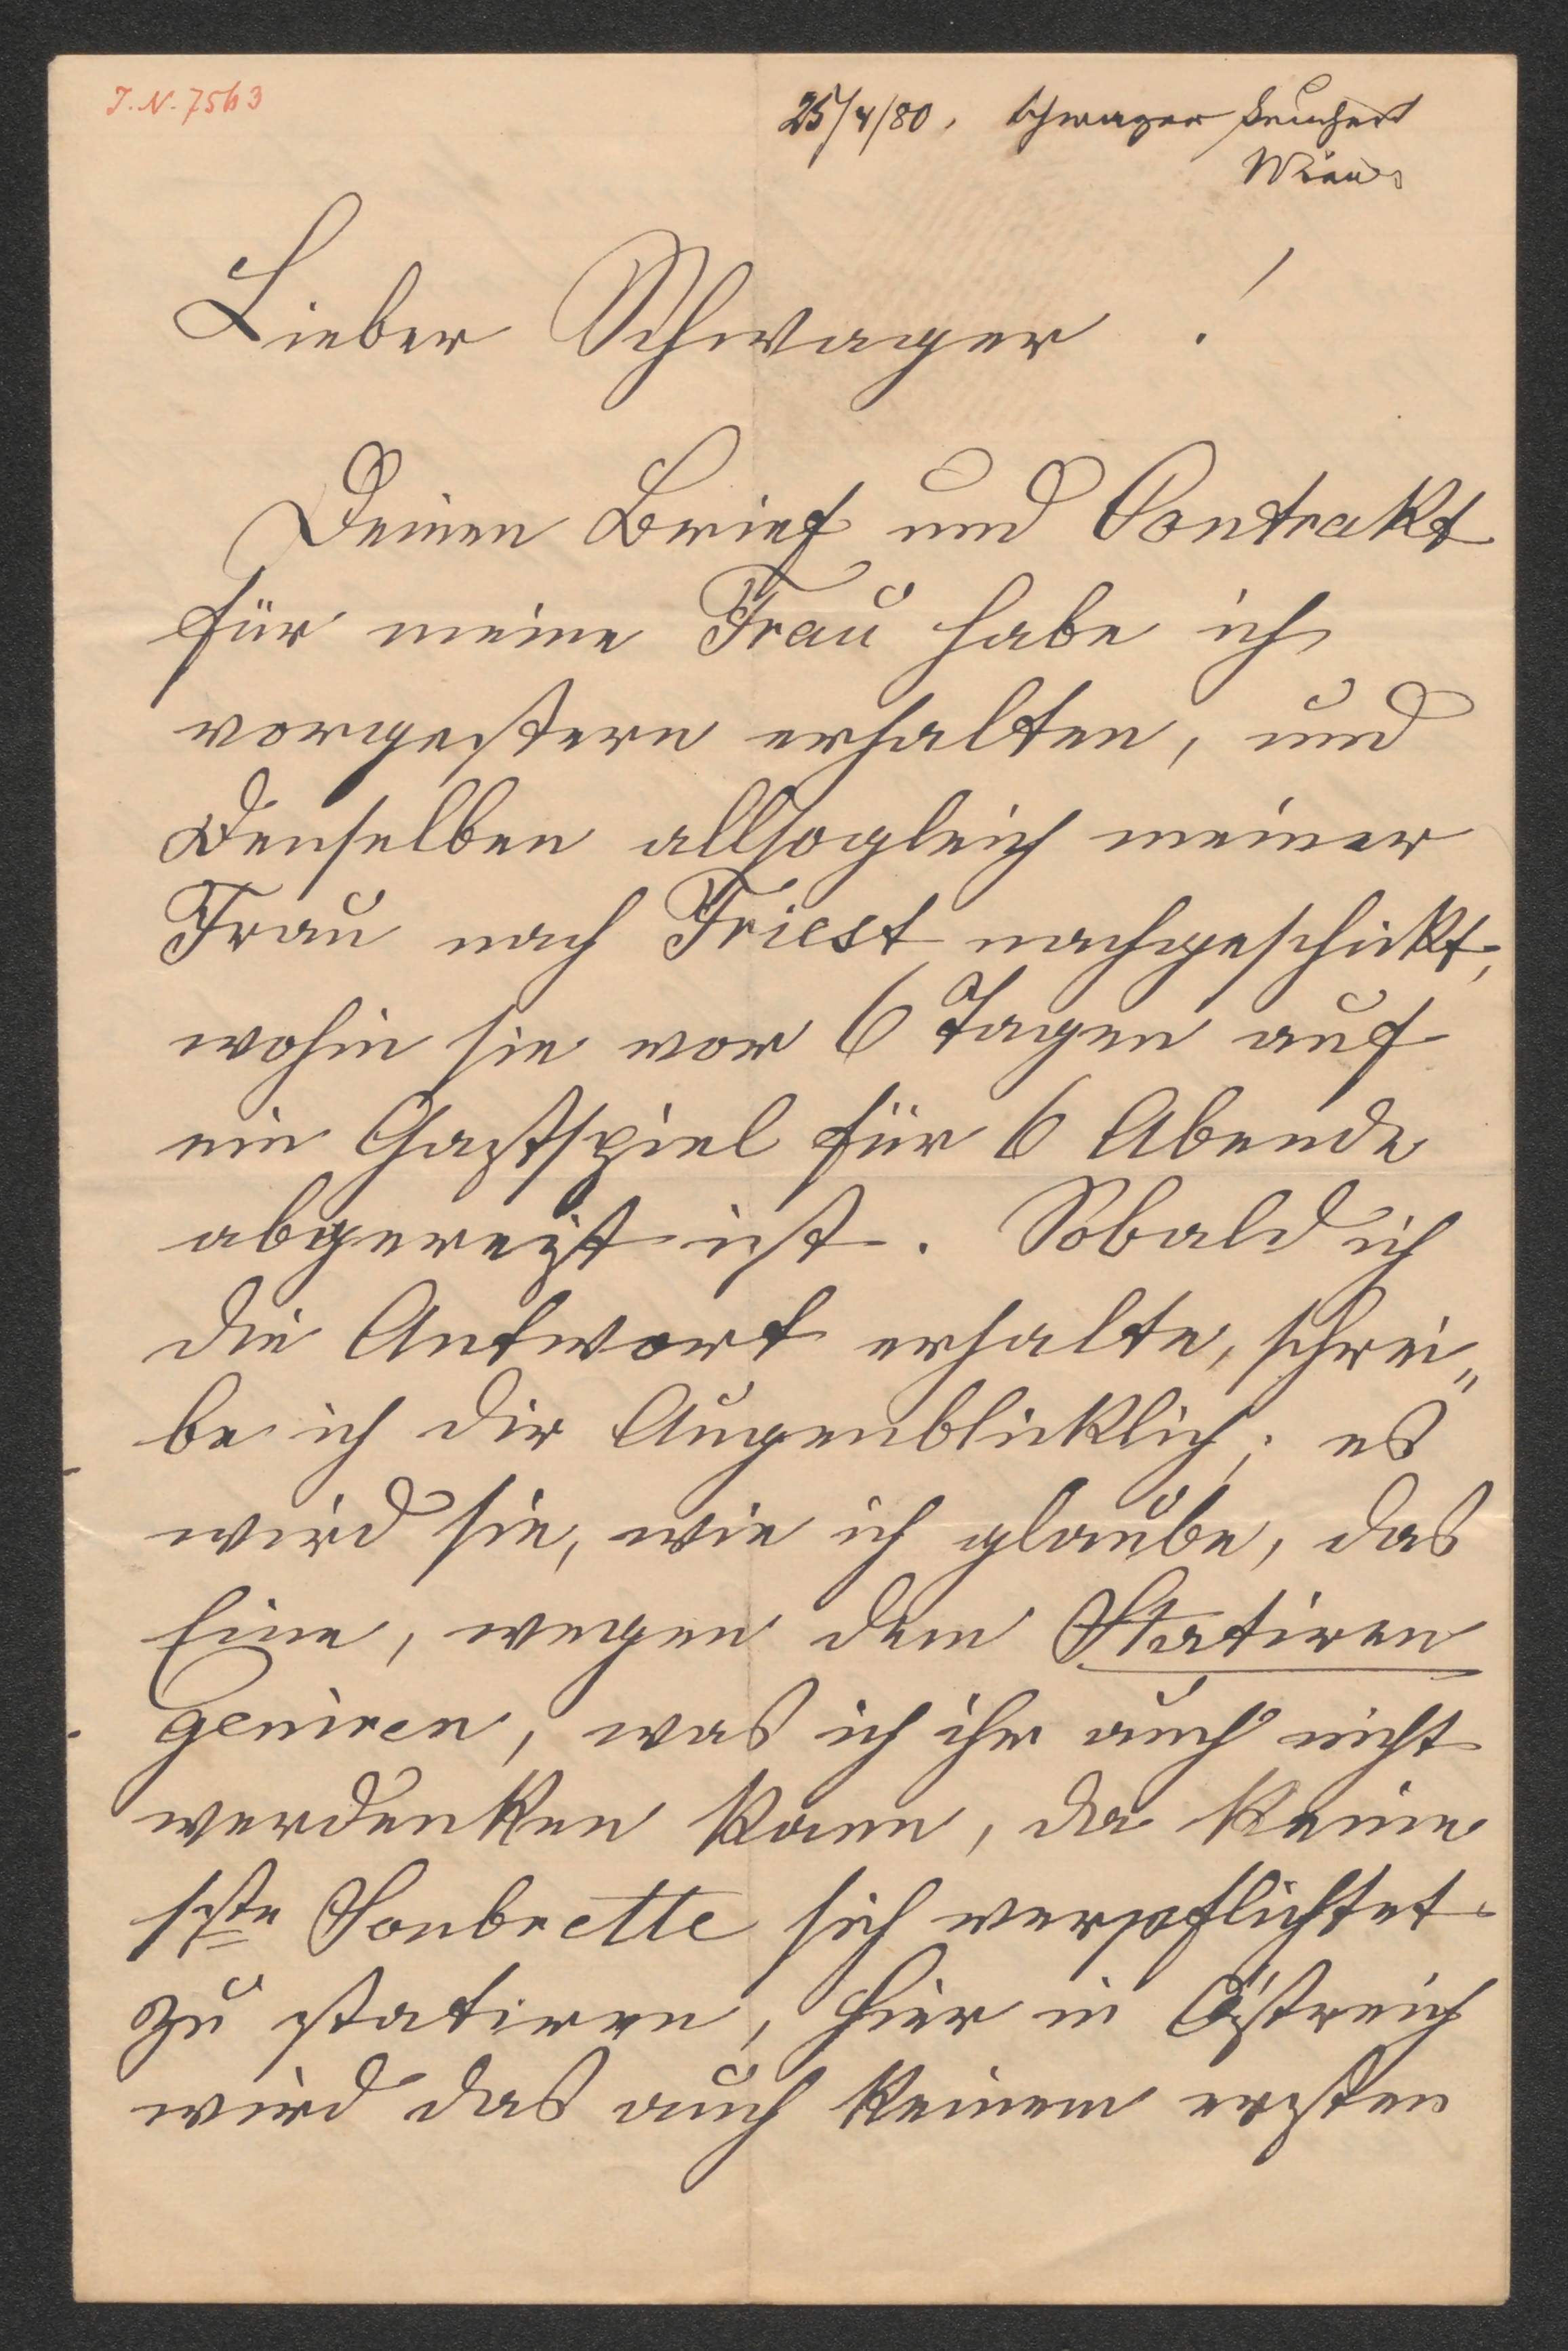 I. N. 7563
25/4/80, Schwager
Wien
Lieber Schwager !
Deinen Brief und Contrakt
für meine Frau habe ich
vorgestern erhalten, und
Denselben allsogleich meiner
Frau nach Triest nachgeschickt,
wohin sie vor 6 Tagen auf
ein Gastspiel für 6 Abende
abgereist ist. Sobald ich
die Antwort erhalte, schrei„
be ich dir Augenblicklich; es
wird sie, wie ich glaube, das
Eine, wegen dem Statiren
geniren, was ich ihr auch nicht
verdenken kann, da keine
1ste Soubrette sich verpflichtet
zu statiren, hier in Östreich
wird das auch keinem ersten